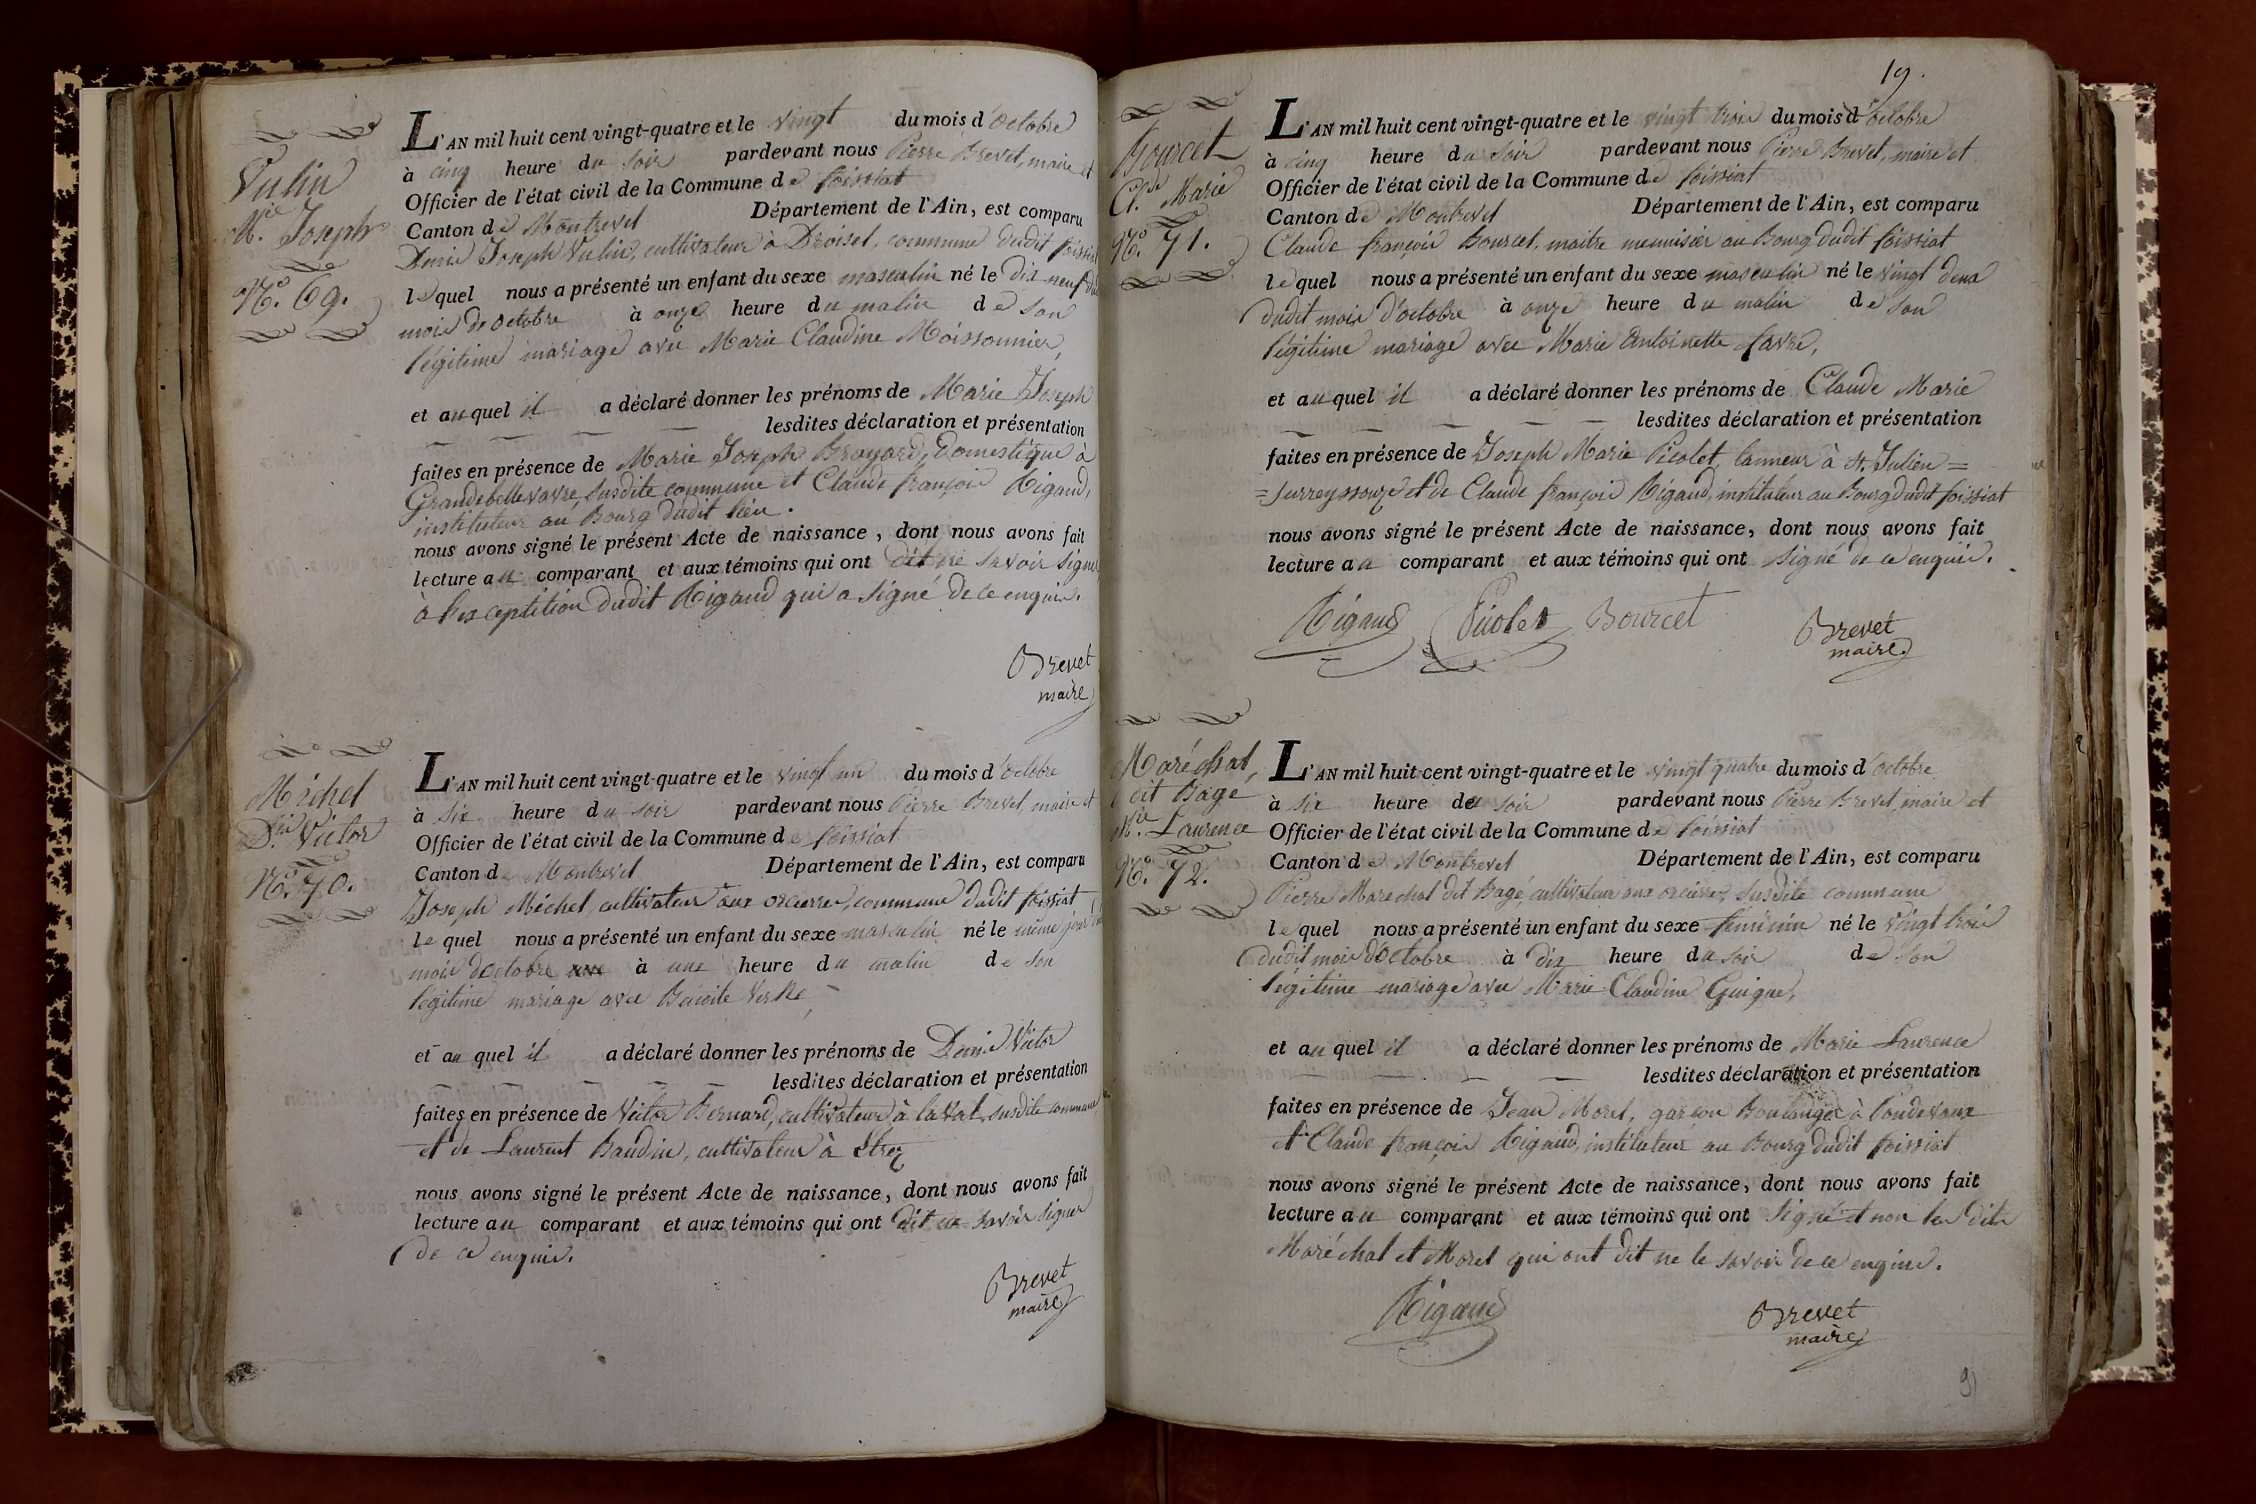 Vulin
Mie. Joseph
No. 69.
L'AN mil huit cent vingt-quatre et le vingt du mois d'octobre
à cinq heure du soir pardevant nous Pierre Brevet, maire et
Officier de l'état civil de la Commune de foissiat
Canton de Montrevel Département de l'Ain, est comparu
Denis Joseph Vulin, cultivateur à Droiset, commune dudit foissiat
lequel nous a présenté un enfant du sexe masculin né le dix neuf du
mois de octobre à onze heure du matin de son
légitime mariage avec Marie Claudine Moissonnier,
et auquel il a déclaré donner les prénoms de Marie Joseph
lesdites déclaration et présentation
faites en présence de Marie Joseph Broyard, Domestique à
Grandebellevavre, susdite commune et Claude françois Rigaud,
instituteur au Bourg dudit lieu.
nous avons signé le présent Acte de naissance, dont nous avons fait
lecture au comparant et aux témoins qui ont dit ne savoir signer
à l'exceptition dudit Rigaud qui a signé de ce enquis.
Brevet
maire
Michel
Dis. Victor
No. 70.
L'AN mil huit cent vingt-quatre et le vingt un du mois d'octobre
à six heure du soir pardevant nous Pierre Brevet, maire et
Officier de l'état civil de la Commune de foissiat
Canton de Montrevel Département de l'Ain, est comparu
Joseph Michel, cultivateur aux orcierres, commune dudit foissiat
lequel nous a présenté un enfant du sexe masculin né le même jour du
mois d'octobre à une heure du matin de son
légitime mariage avec Benoite
et auquel il a déclaré donner les prénoms de Denis Victor
lesdites déclaration et présentation
faites en présence de Victor Bernard, cultivateur à laval, susdite commune
et de Laurent Baudin, cultivateur à Etrez
nous avons signé le présent Acte de naissance, dont nous avons fait
lecture au comparant et aux témoins qui ont dit ne savoir signer
de ce enquis.
Brevet
maire
19.
Bourcet
Cl.de Marie
No. 71.
L'AN mil huit cent vingt-quatre et le vingt trois du mois d'octobre
à cinq heure du soir pardevant nous Pierre Brevet, maire et
Officier de l'état civil de la Commune de foissiat
Canton de Montrevel Département de l'Ain, est comparu
Claude françois Bourcet, maitre menuisier au Bourg dudit foissiat
lequel nous a présenté un enfant du sexe masculin né le vingt deux
dudit mois d'octobre à onze heure du matin de son
légitime mariage avec Marie Antoinette favre,
et auquel il a déclaré donner les prénoms de Claude Marie
lesdites déclaration et présentation
faites en présence de Joseph Marie Picolet, tanneur à St. Julien =
= surreyssouze et de Claude françois Rigaud, instituteur au Bourg dudit foissiat
nous avons signé le présent Acte de naissance, dont nous avons fait
lecture au comparant et aux témoins qui ont signé de ce enquis.
Rigaud Picolet Bourcet Brevet
maire
Maréchal,
dit Bagé
Mie. Laurence
No. 72.
L'AN mil huit cent vingt-quatre et le vingt quatre du mois d'octobre
à six heure du soir pardevant nous Pierre Brevet, maire et
Officier de l'état civil de la Commune de foissiat
Canton de Montrevel Département de l'Ain, est comparu
Pierre Maréchal dit Bagé, cultivateur aux orcierres, susdite commune
lequel nous a présenté un enfant du sexe féminin né le vingt trois
dudit mois d'octobre à dix heure du soir de son
légitime mariage avec Marie Claudine Guigue,
et auquel il a déclaré donner les prénoms de Marie Laurence
lesdites déclaration et présentation
faites en présence de Jean Morel, garçon Boulanger à Pondevaux
et Claude françois Rigaud, instituteur au Bourg dudit foissiat
nous avons signé le présent Acte de naissance, dont nous avons fait
lecture au comparant et aux témoins qui ont signé et non les dits
Maréchal et Morel qui ont dit ne le savoir de ce enquis.
Rigaud Brevet
maire